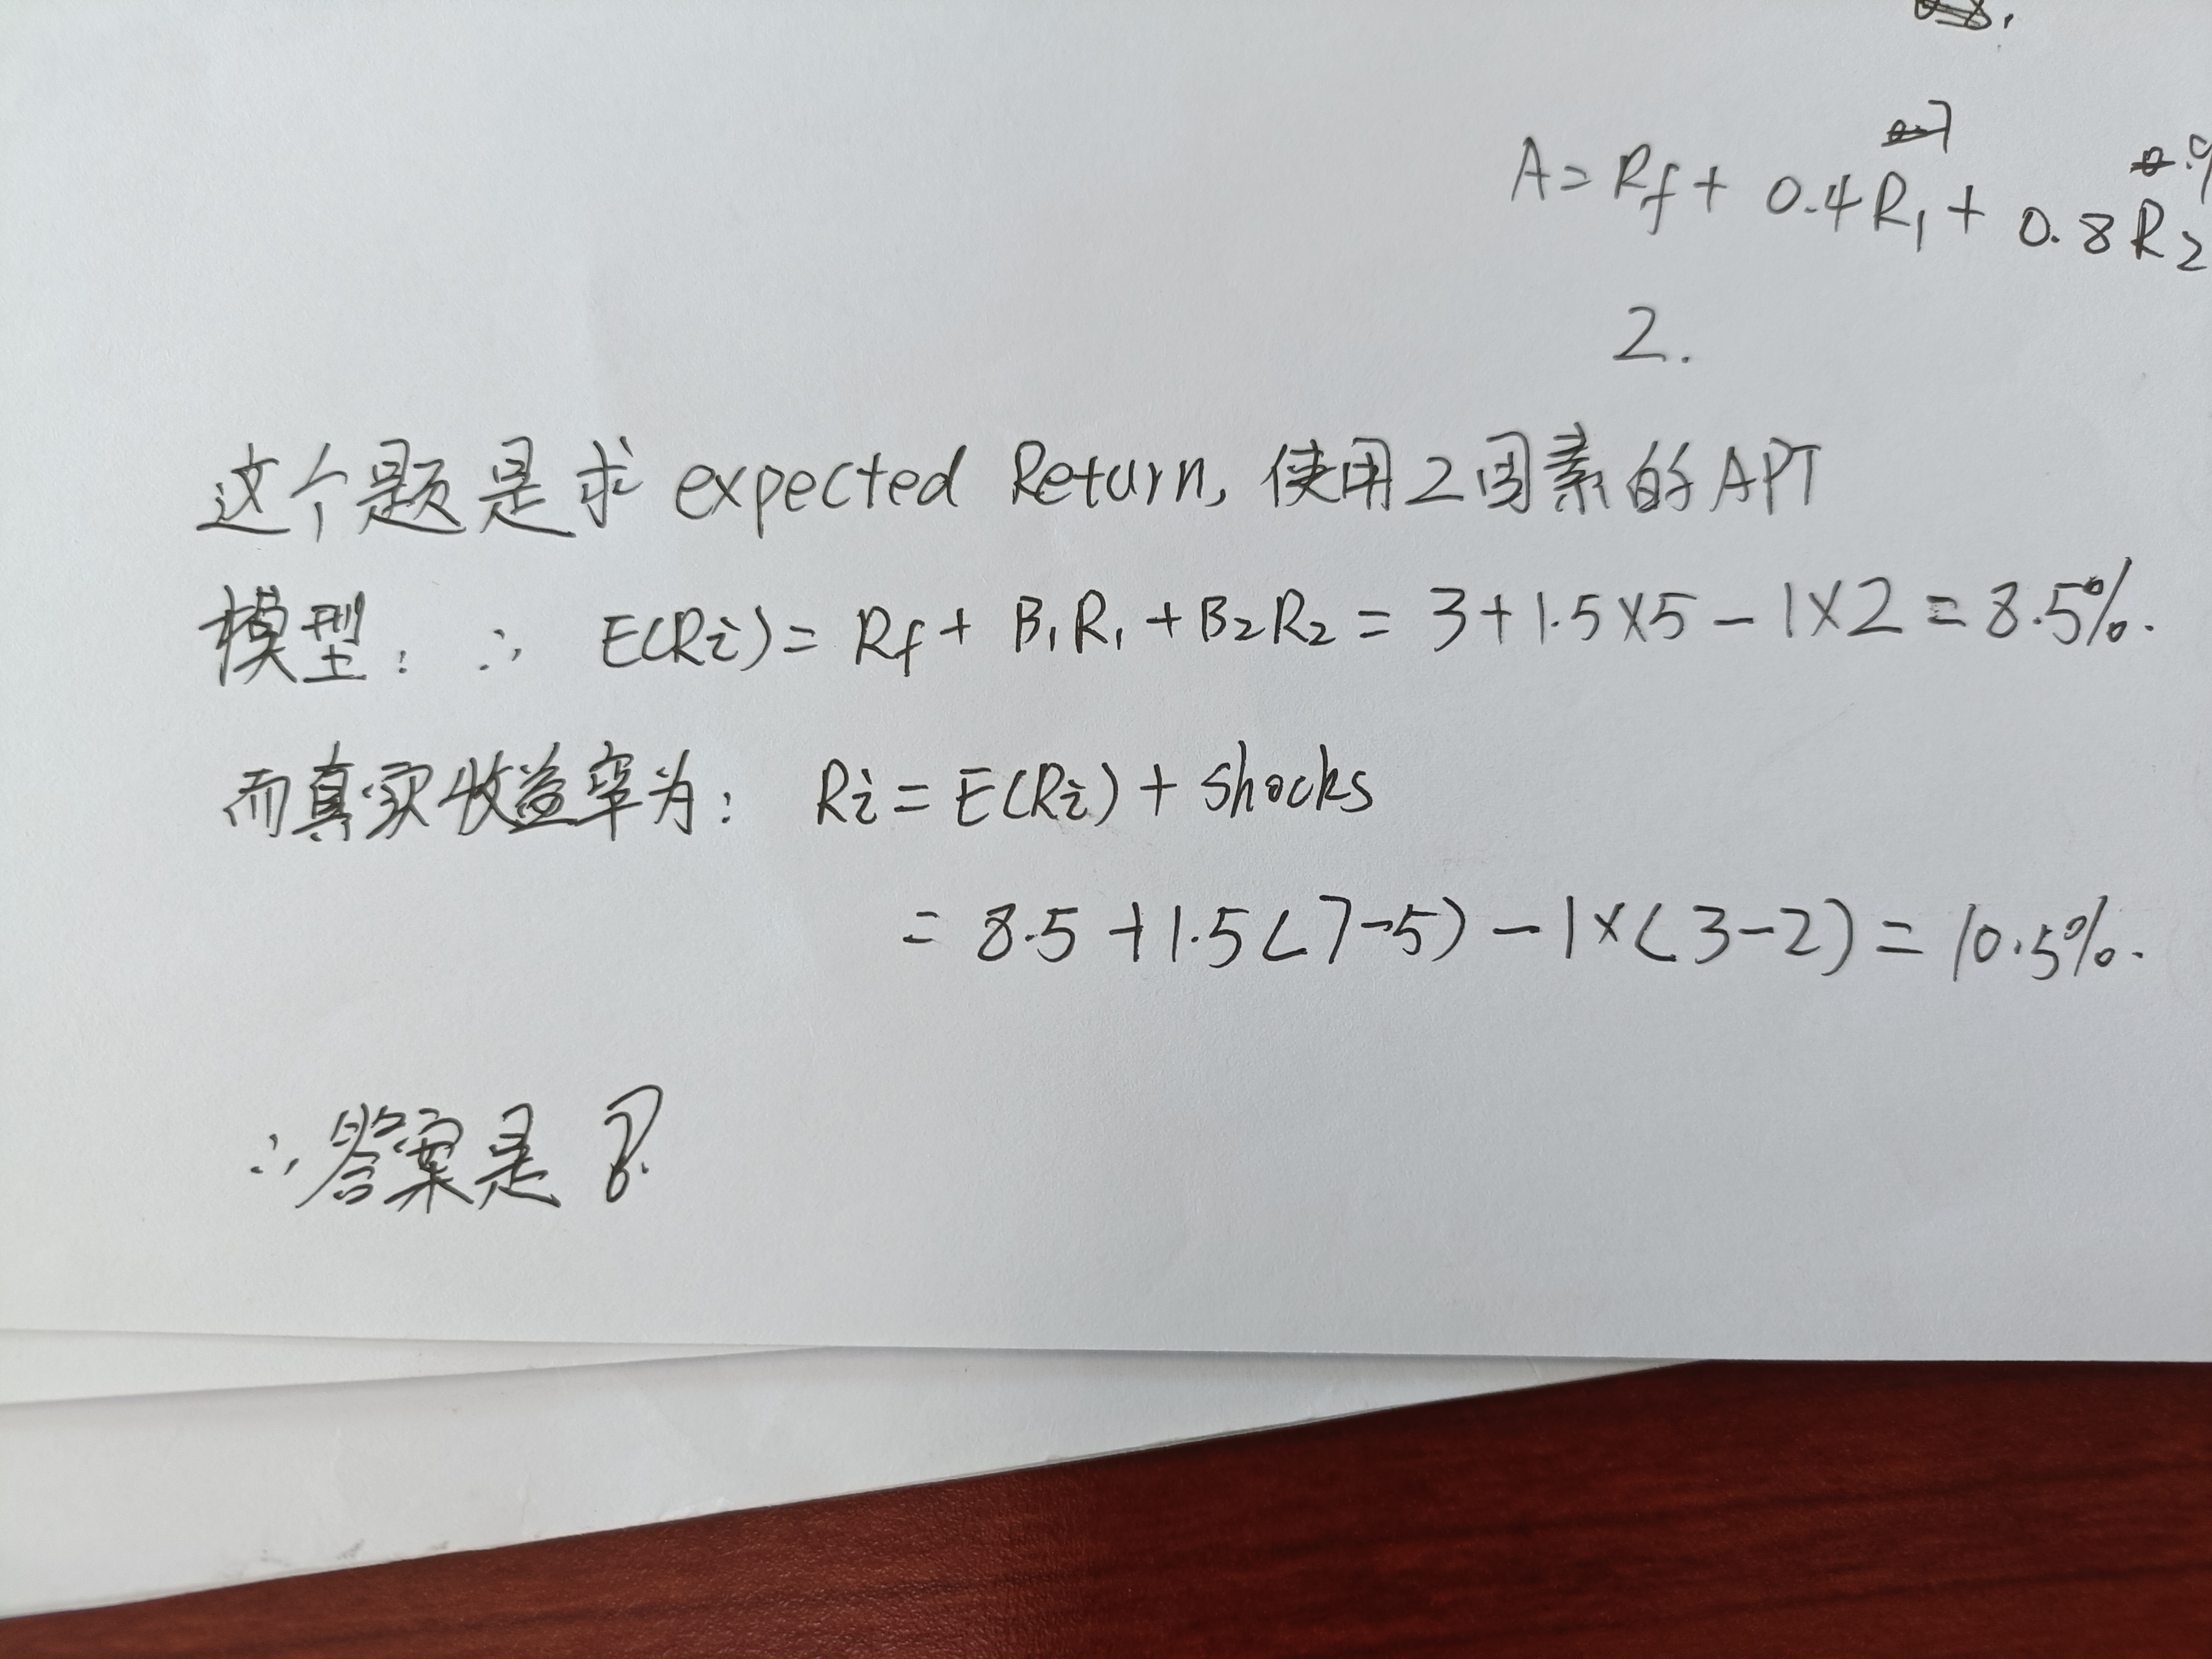 A = Rf + 0.4R₁ + 0.8R₂
2.
这个题是求 expected Return, 使用2因素的APT
模型, ∴ E(Ri) = Rf + B₁R₁ + B₂R₂ = 3+1.5×5-1×2 = 8.5%.
而真实收益率为: Ri = E(Ri) + Shocks
= 8.5+1.5(7-5)-1×(3-2) = 10.5%.
∴ 答案是 ?